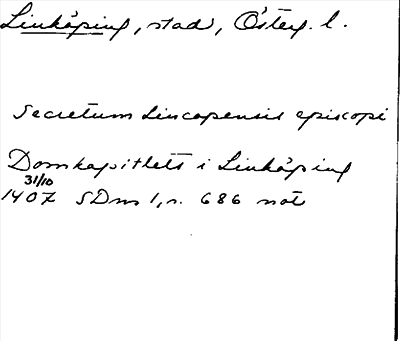 Linköping, stad, Österg. l.
Secretum Lincopensis episcopi
Domkapitlets i Linköping
31/10
1407 SDns 1, n. 686 not